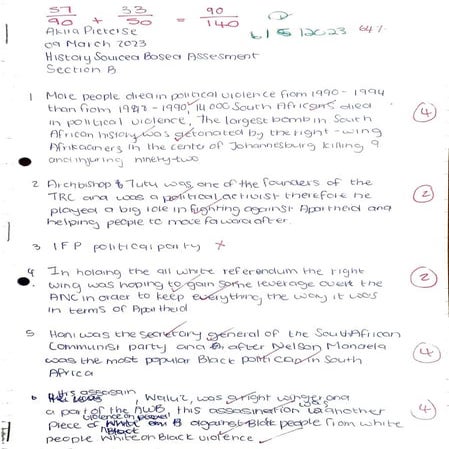 57/90 + 33/50 = 90/140
6/5/2023 64%
Akira Pietcise
09 March 2023
History Sourcea Based Assesment
Section B
1 More people died in political violence from 1990 - 1994
than from 1948 - 1990, 14 000 South Africans died
in political violence, The largest bomb in South
African history was detonated by the right-wing
Afrikaaners in the center of Johannesburg killing 9
and injuring ninety-two
4
2 Archbishop Tutu was one of the founders of the
TRC and was a political activist therefore he
played a big role in fighting against Apartheid and
helping people to move foward after.
2
3 IFP political party
4 In holding the all white referendum the right
wing was hoping to gain some leverage over the
ANC in order to keep everything the way it was
in terms of Apartheid
2
5 Hani was the secretary general of the South African
Communist party and after Nelson Mandela
was the most popular Black politician in South
Africa
4
6 His assasain, Waluz, was a right winger and
a part of the AWB, this assasination was another
piece of violence on against Black people from white
people White on Black violence
4